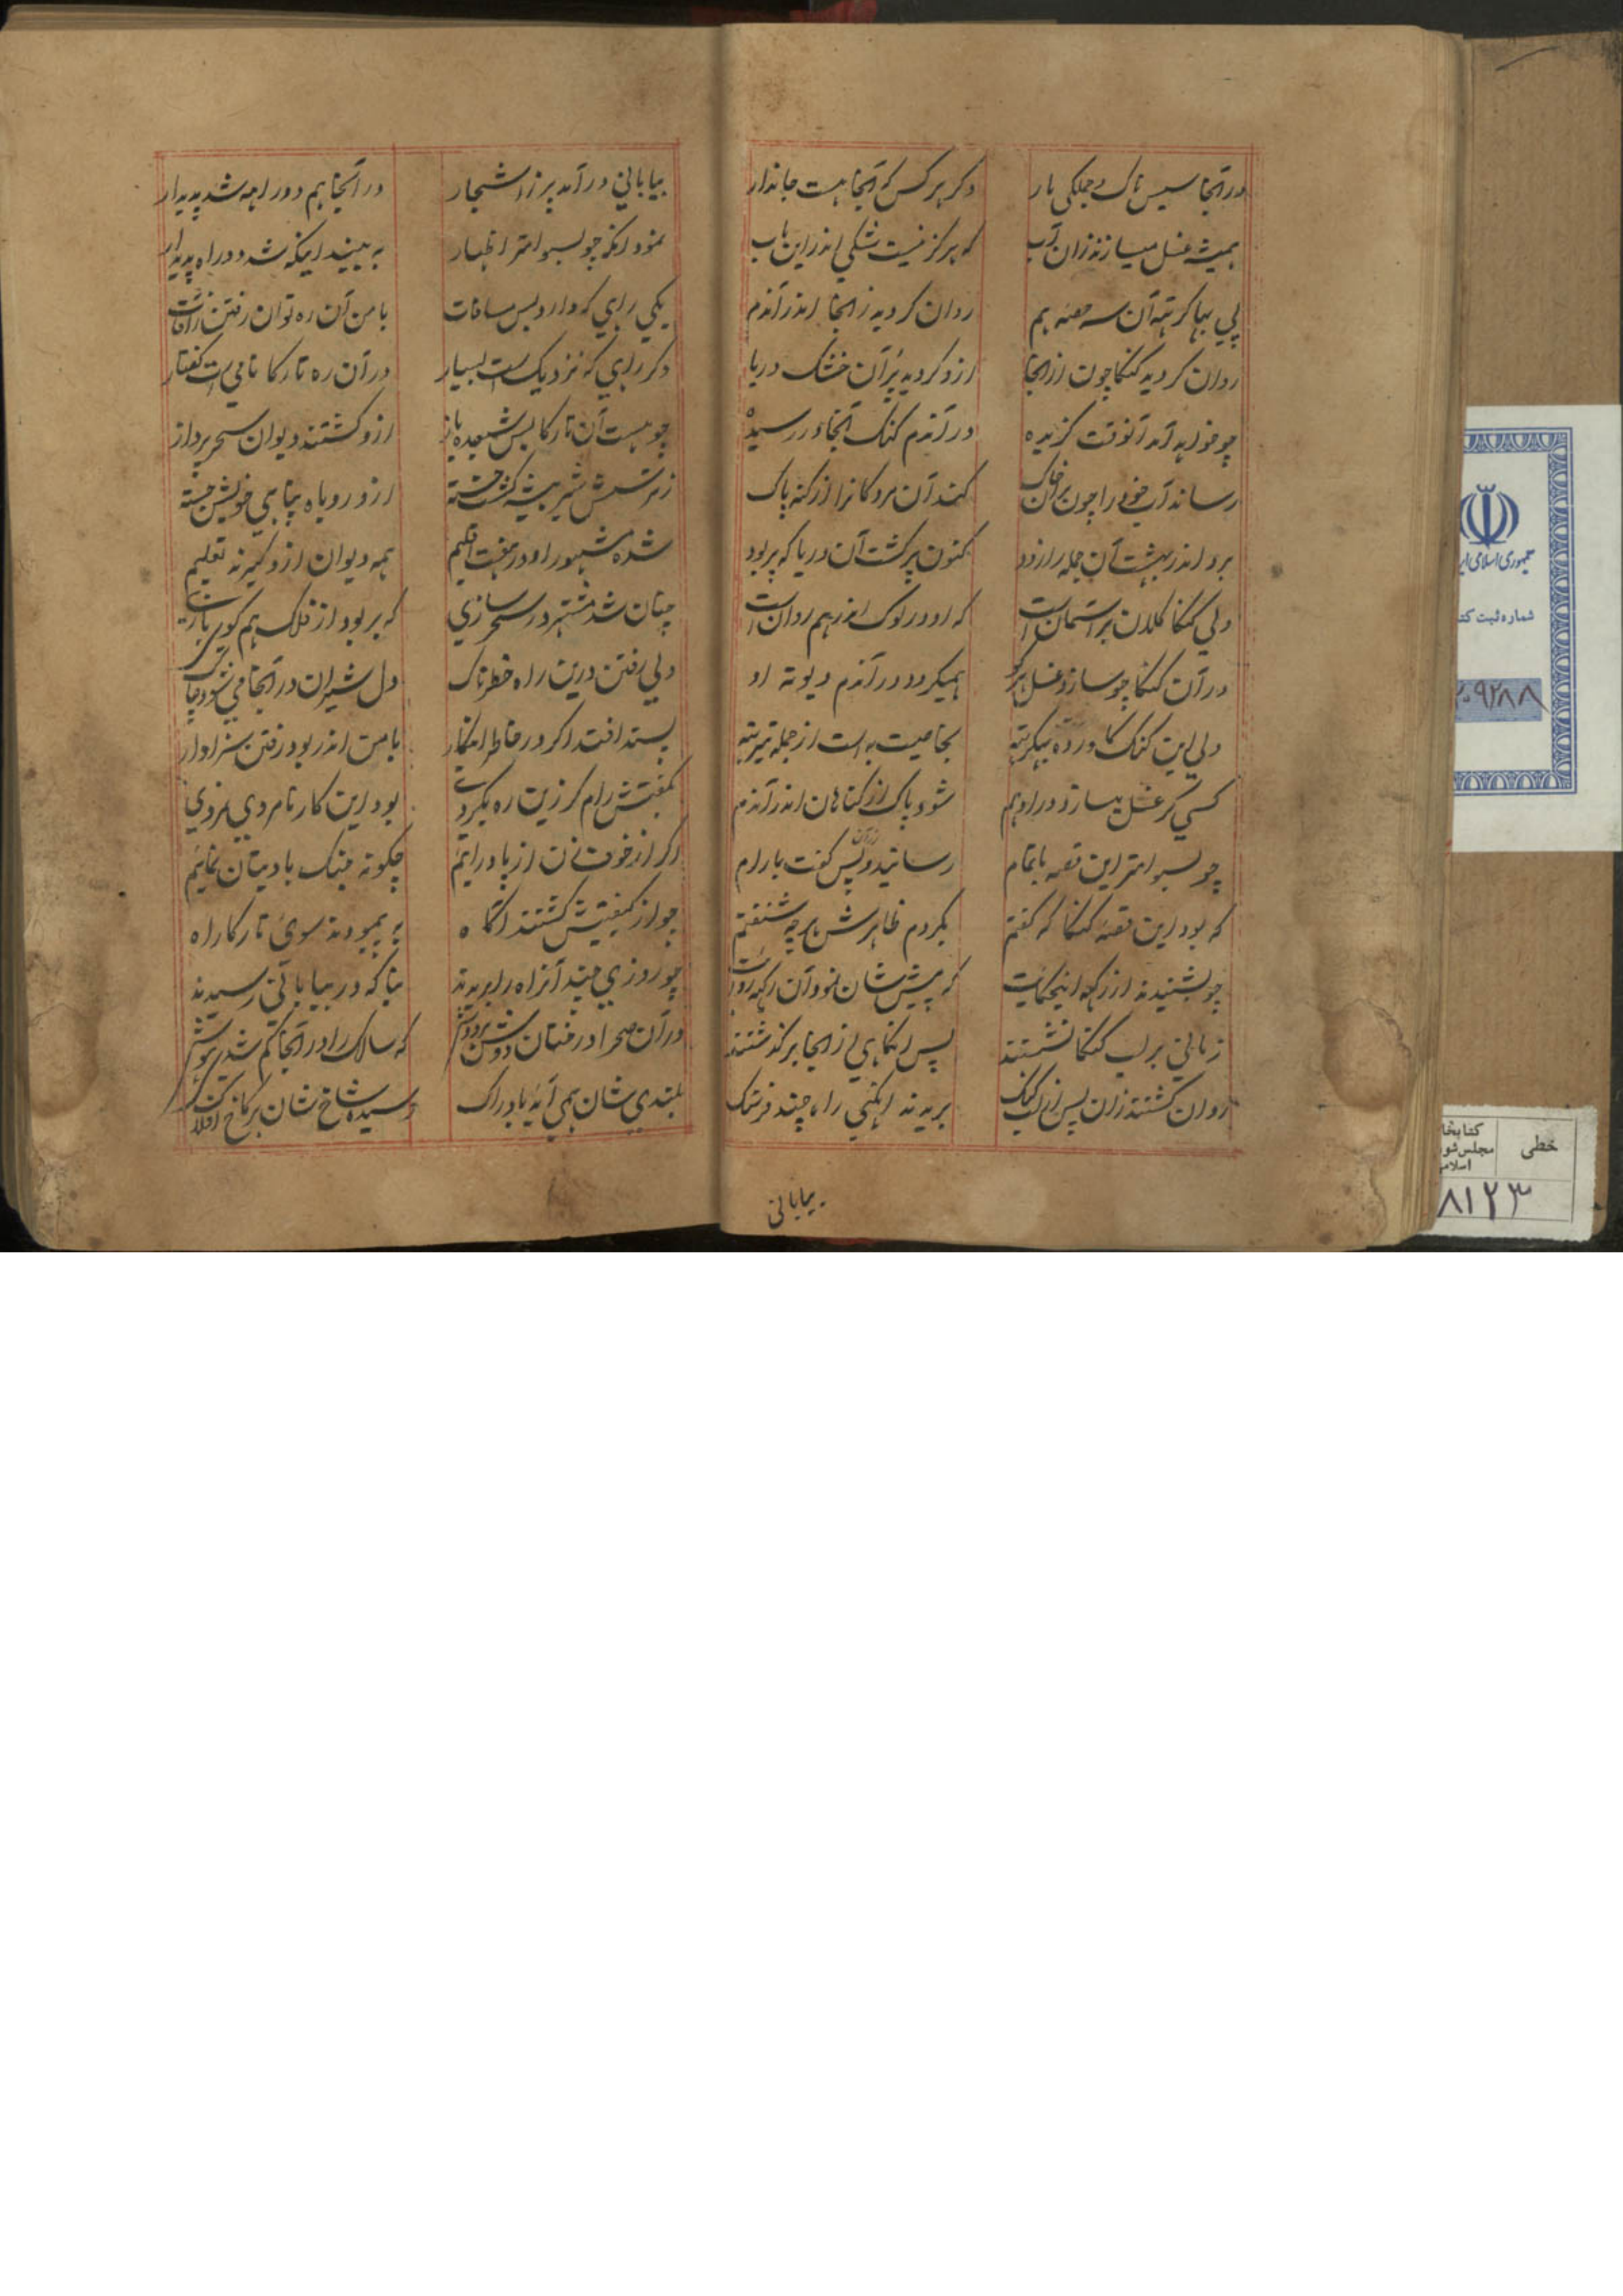 در آنجا سیس ناک و جملکی مار دکر هر کس که آنجا هست جاندار
همیشه غسل میسازند زان آب که هرکز نیست شکی اندر این باب
پی بهاکرتهه آن سه حصه هم روان کردید زانجا اندر آندم
روان کردید کنکا چون از انجا ازو کردید پر آن خشک دریا
چو خواهد آمد آنوقت کزیده در آندم کنک آنجا در رسیده
رساند آب خود را چون بر آن خاک کند آن مردکانرا از کنه پاک
برد اندر بهشت آن جمله را زود کنون پر کشت آن دریا که پر بود
ولی کنکا کلان بر آسمان است که او در لوک اندر هم روان است
در آن کنکا چو سازد غسل هر کو همیکردد در آندم دیوته او
ولی این کنک کاورده بهکرتهه بخاصیت به است از جمله تیرتهه
کسی کر غسل میسازد در او هم شود پاک از کناهان اندر آندم
چو بسوامتر این قصه باتمام رسانید و پس زان کفت با رام
که بود این قصه کنکا که کفتم بکردم ظاهرش هر چه شنفتم
چو بشنیدند از رکهه اینحکایت که پیش شان نمود آن رکهه روایت
زمانی بر لب کنکا نشستند پس انکاهی از آنجا بر کذشتند
روان کشتند زان پس از لب کنک بریدند انکهی را ها چند فرسنک
بیابانی
بیابانی در آمد پر ز اشجار در آنجا هم دو راهه شد پدیدار
نمود انکه چو بسوامتر اظهار به بینید اینکه شد دو راه پدیدار
یکی راهی که دارد بس مسافات با من آن ره توان رفتن ز آفات
دکر راهی که نزدیک است بسیار در آن ره تارکا نامی است کفتار
چو هست آن تارکا بس شعبده باز ازو کشتند دیوان سحر پرداز
ز ترسش شیر بیشه کشت خسته ازو روباه پناهی خویش جسته
شده مشهور او در هفت اقلیم همه دیوان ازو کیرند تعلیم
چنان شد مشتهر در سحر سازی که بر بود از فلک هم کوی بازی
ولی رفتن درین راه خطرناک دل شیران در آنجا می شود چاک
پسند افتد اکر در خاطر انکار با من اندر بود رفتن سزاوار
بکفتش رام کر زین ره بکردی بود این کار نامردی نه مردی
اکر از خوف زن از پا در ایم چکونه جنک با دیتان نمایم
چو از کیفیتش کشتند اکاه به پیمودند سوی تارکا راه
چو روزی چند آنراه را بریدند بنا که در بیابانی رسیدند
در آن صحرا درختان دوش بر دوش که سالک را در آنجا کم شدی هوش
بلندی شان همی آید با دراک رسیده شاخ شان بر کاخ افلاک
جمهوری اسلامی ایر
شماره ثبت کتا
۲۰۹۲۸۸
خطی
کتابخا
مجلس شو
اسلام
۸۱۲۳